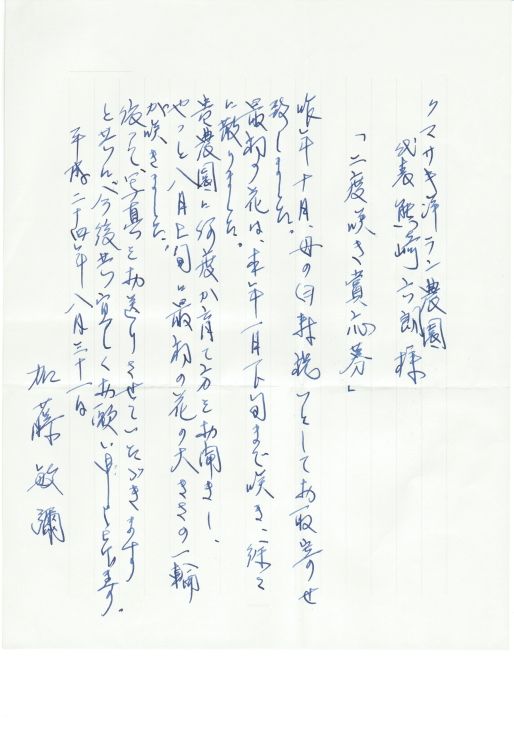 クマサキ洋ラン農園
代表 熊崎 六郎 様
「二度咲き賞応募」
昨年十月、母の白寿祝いとしてお取寄せ
致しました。
最初の花は、本年一月下旬まで咲き、綵々
に散りました。
貴農園に何度か育て方をお聞きし、
やっと八月上旬に最初の花の大きさの一輪
が咲きました。
依って写真をお送りさせていただきます
と共に今後共宜しくお願い申し上げます。
平成二十四年八月三十一日
加藤敏彌